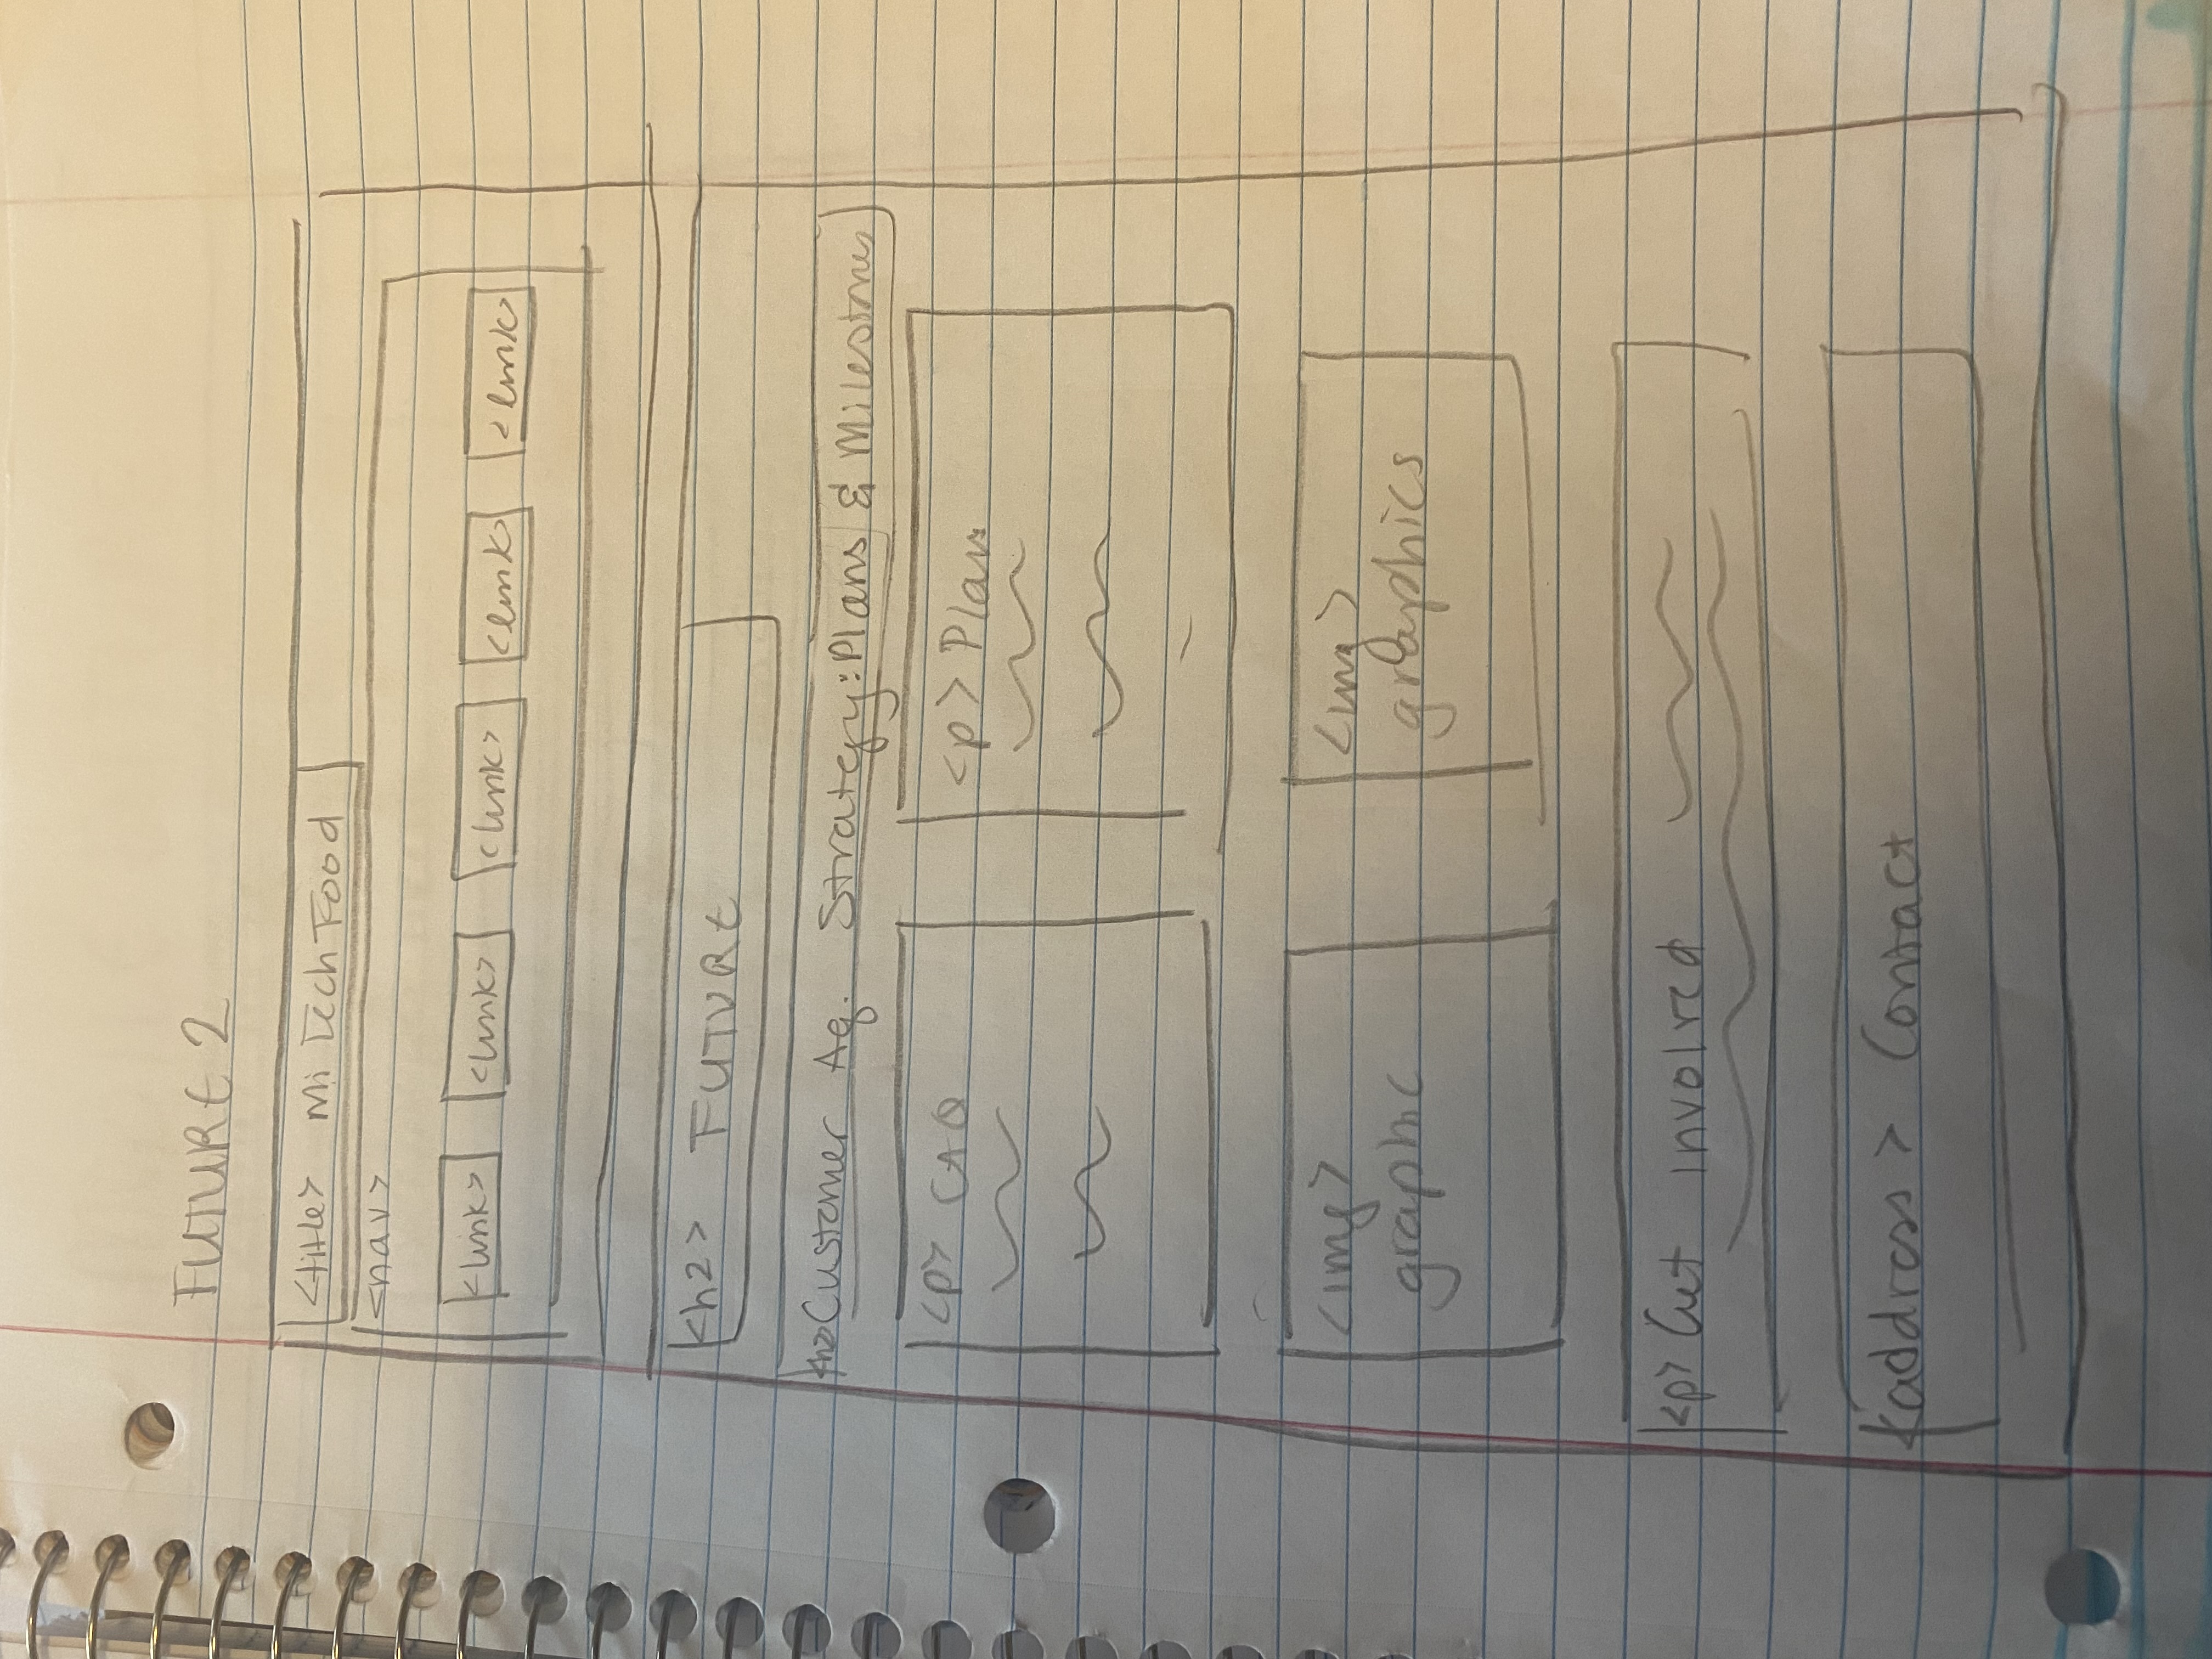 FUTURE 2
<title> Mi Tech Food
<nav>
<link> <link> <link> <link> <link>
<h2> FUTURE
<h2> Customer Aq. Strategy: Plans & Milestones
<p> CAQ <p> Plans
<img> <img>
graphic graphics
<p> Get involved
<address> Contact